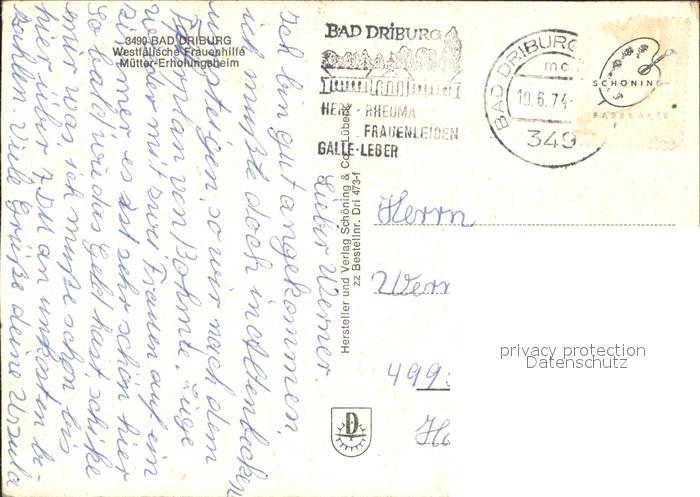 3490 BAD DRIBURG
Westfälische Frauenhilfe
Mütter-Erholungsheim
BAD DRIBURG
HERZ - RHEUMA
FRAUENLEIDEN
GALLE-LEBER
BAD DRIBURG
mc
19.6.74-
349
SCHÖNING
FARBKARTE
Hersteller und Verlag Schöning & Co., Lübeck
zz Bestellnr. Dri 473-f
Lieber Werner.
Ich bin gut angekommen,
ich mußte doch in Altenbeken
umsteigen, so wir nach dem
Fahrplan von Bohmte. Liege
hier mit zwei Frauen auf ein
Zimmer es ist sehr schön hier
So bald wie das Geld hast schike
mir was ich mußte schon bis
hier über 7 DM an unkosten be-
zahlen Viele Grüße deine Ursula
Herrn
Wern
499
D
privacy protection
Datenschutz